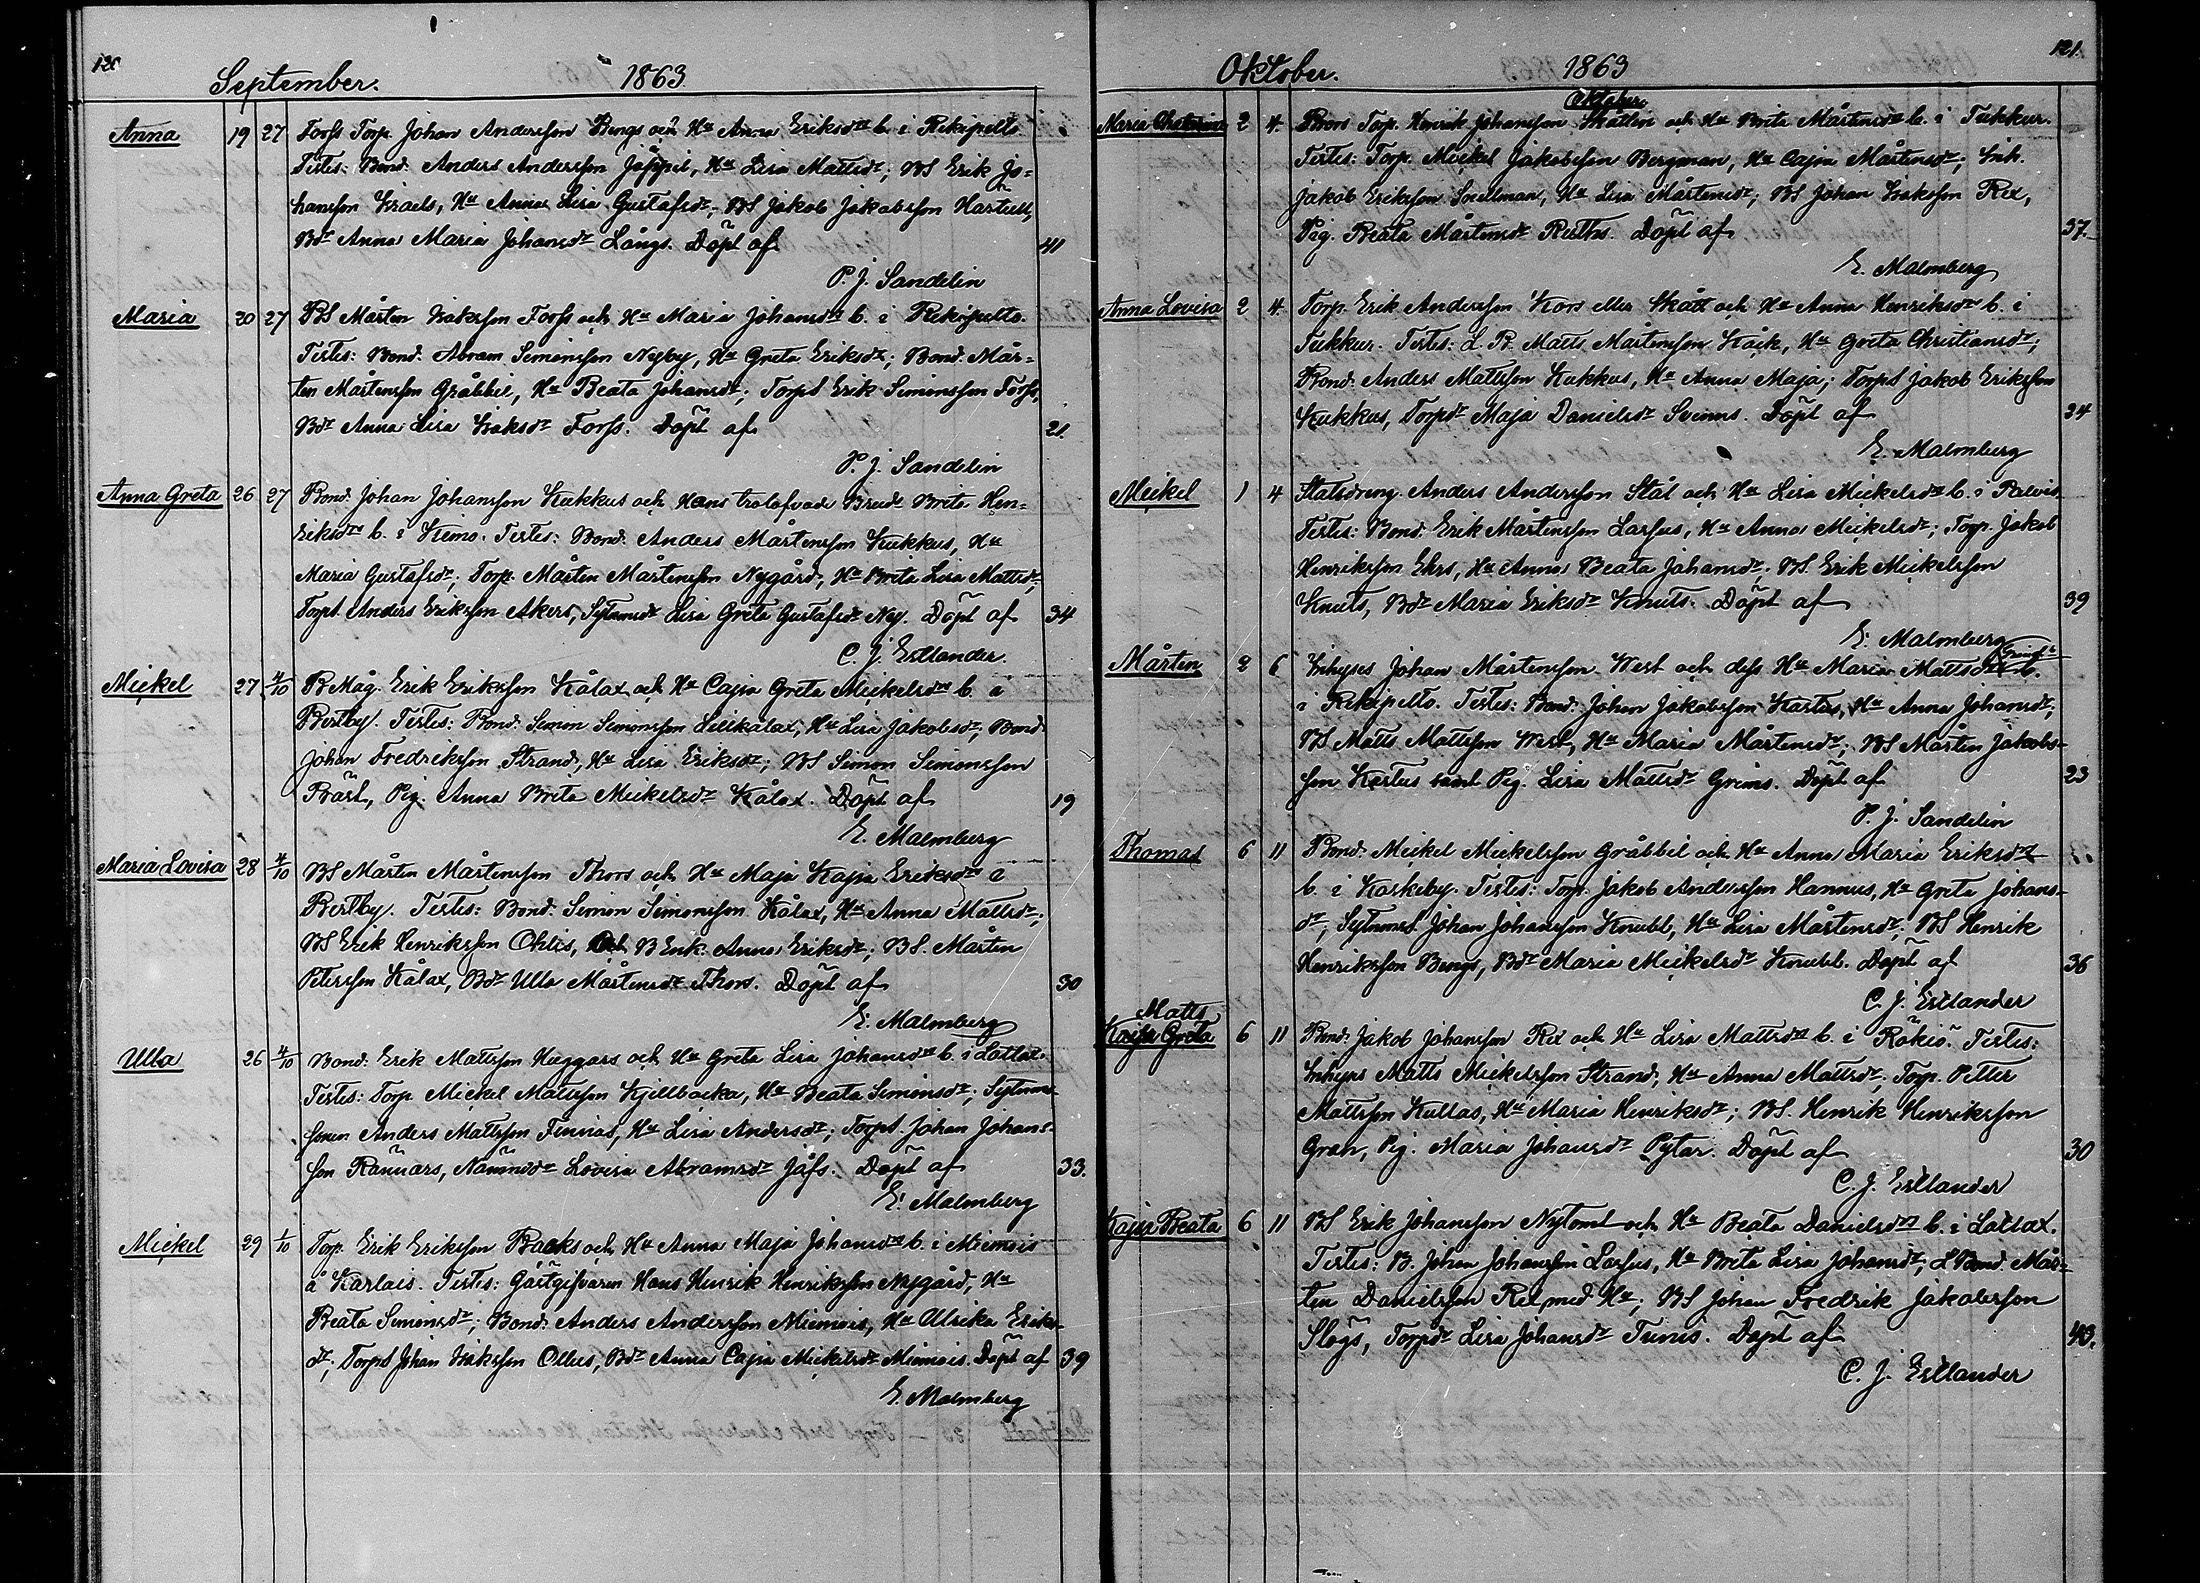 120
September. 1863
Anna 19 27 Forss Torp. Johan Andersson Bengs och Hu Anna Eriksdr b. i Rekipelto
Testes: Bond. Anders Andersson Jöppil, Hu Lisa Mattsdr; BS Erik Jo=
hansson Israels, Hu Anna Lisa Gustafsdr; BS Jakob Jakobsson Hartull,
Bdr Anna Maria Johansdr Långs. Döpt af 41
P. J. Sandelin
Maria 20 27 BS Mårten Isaksson Forss och Hu Maria Johansdr b. i Rekipelto.
Testes: Bond. Abram Simonsson Nyby, Hu Greta Eriksdr; Bond. Mår=
ten Mårtensson Gråbbil, Hu Beata Johansdr; TorpS Erik Simonsson Forss,
Bdr Anna Lisa Isaksdr Forss. Döpt af 21.
P. J. Sandelin
Anna Greta 26 27 Bond. Johan Johansson Kukkus och Hans trolofvade Brud Brita Hen=
riksdr b. i Kimo. Testes: Bond. Anders Mårtensson Kukkus, Hu
Maria Gustafsdr; Torp. Mårten Mårtensson Nygård, Hu Brita Lisa Mattsdr;
TorpS Anders Eriksson Akers, Sytnmsdr Lisa Greta Gustafsdr Ney. Döpt af 34
C. J. Estlander.
Mickel 27 4/10 B Måg. Erik Eriksson Kålax och Hu Cajsa Greta Mickelsdr b. i
Bertby. Testes: Bond. Simon Simonsson Lillkålax, Hu Lisa Jakobsdr; Bond.
Johan Fredriksson Strand, Hu Lisa Eriksdr; BS Simon Simonsson
Präst, Pig. Anna Brita Mickelsdr Kålax. Döpt af 19
E. Malmberg
Maria Lovisa 28 4/10 BS Mårten Mårtensson Thors och Hu Maja Kajsa Eriksdr i
Bertby. Testes: Bond. Simon Simonsson Kålax, Hu Anna Mattsdr;
BS Erik Henriksson Ohlis, och B Enk. Anna Eriksdr; BS. Mårten
Petersson Kålax, Bdr Ulla Mårtensdr Thors. Döpt af 30
E. Malmberg
Ulla 26 4/10 Bond. Erik Mattsson Kaggars och Hu Greta Lisa Johansdr b. i Lotlax.
Testes: Torp. Mickel Mattsson Kjellbacka, Hu Beata Simonsdr; Sytnms-
sonen Anders Mattsson Finnas, Hu Lisa Andersdr; TorpS. Johan Johans-
son Rännars, Nämndr Lovisa Abramsdr Jåfs. Döpt af 33.
E. Malmberg
Mickel 29 1/10 Torp. Erik Eriksson Backs och Hu Anna Maja Johansdr b. i Miemois
å Karlais. Testes: Gästgifvaren Hans Henrik Henriksson Nygård, Hu
Beata Simonsdr; Bond. Anders Andersson Miemois, Hu Ulrika Eriks-
dr; TorpS Johan Isaksson Ollus, Bdr Anna Cajsa Mickelsdr Miemois. Döpt af 39
E. Malmberg
121.
Oktober. 1863
Oktober
Maria Chatarina 2 4. Bors Torp. Henrik Johansson Skatlin och Hu Brita Mårtensdr b. i Tukkur.
Testes: Torp. Mickel Jakobsson Bergman, Hu Cajsa Mårtensdr; Inh.
Jakob Eriksson Snellman, Hu Lisa Mårtensdr; BS Johan Isaksson Rex,
Pig. Beata Mårtensdr Ruths. Döpt af 37.
E. Malmberg
Anna Lovisa 2 4. Torp. Erik Andersson Kors eller Skått och Hu Anna Henriksdr b. i
Tukkur. Testes: L. B. Matts Mårtensson Kack, Hu Greta Christiansdr;
Bond. Anders Mattsson Kukkus, Hu Anna Maja; TorpS Jakob Eriksson
Kukkus, Torpdr Maja Danielsdr Svenns. Döpt af 34
E. Malmberg
Mickel 1 4 Statsdreng. Anders Andersson Stål och Hu Lisa Mickelsdr b. i Relvis
Testes: Bond. Erik Mårtensson Larsus, Hu Anna Mickelsdr; Torp. Jakob
Henriksson Ehrs, Hu Anna Beata Johansdr; BS. Erik Mickelsson
Knuts, Bdr Maria Eriksdr Knuts. Döpt af 39
E. Malmberg
Mårten 2 6 Inhyses Johan Mårtensson West och dess Hu Maria Mattsdr b.
i Rekipelto. Testes: Bond. Johan Jakobsson Kastus, Hu Anna Johansdr;
BS Matts Mattsson West, Hu Maria Mårtensdr; BS Mårten Jakobs-
son Kastus samt Pig. Lisa Mattsdr Grims. Döpt af 23
P. J. Sandelin
Thomas 6 11 Bond. Mickel Mickelsson Gråbbil och Hu Anna Maria Eriksdr
b. i Kaskeby. Testes: Torp. Jakob Andersson Hannus, Hu Greta Johans-
dr; SytnmsS. Johan Johansson Knubb, Hu Lisa Mårtensdr; BS Henrik
Henriksson Bengs, Bdr Maria Mickelsdr Knubb. Döpt af 36
C. J. Estlander
Matts
Kajsa Greta 6 11 Bond. Jakob Johansson Rex och Hu Lisa Mattsdr b. i Rökiö. Testes:
Inhyses Matts Mickelsson Strand, Hu Anna Mattsdr; Torp. Petter
Mattsson Kullas, Hu Maria Henriksdr; BS. Henrik Henriksson
Grah, Pig. Maria Johansdr Pytar. Döpt af 30
C. J. Estlander
Kajsa Beata 6 11 BS Erik Johansson Nytomt och Hu Beata Danielsdr b. i Lotlax.
Testes: B. Johan Johansson Larsus, Hu Brita Lisa Johansdr; L Bond. Mår=
ten Danielsson Rex, med Hu; BS Johan Fredrik Jakobsson
Slogs, Torpdr Lisa Johansdr Tunis. Döpt af 43.
C. J. Estlander